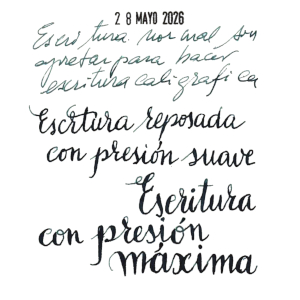 28 MAYO 2026
Escritura normal sin
apretar para hacer
escritura caligrafica
Escrtura reposada
con presión suave
Escritura
con presión
máxima